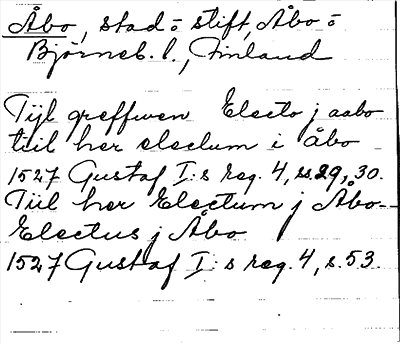 Åbo, stad o stift, Åbo o
Björneb. l., Finland
Tijl greffwen Electo j aabo
tiil her electum i åbo
1527 Gustaf I:s reg. 4, ss. 29, 30.
Tiil her Electum j Åbo -
Electus j Åbo
1527 Gustaf I:s reg. 4, s. 53.